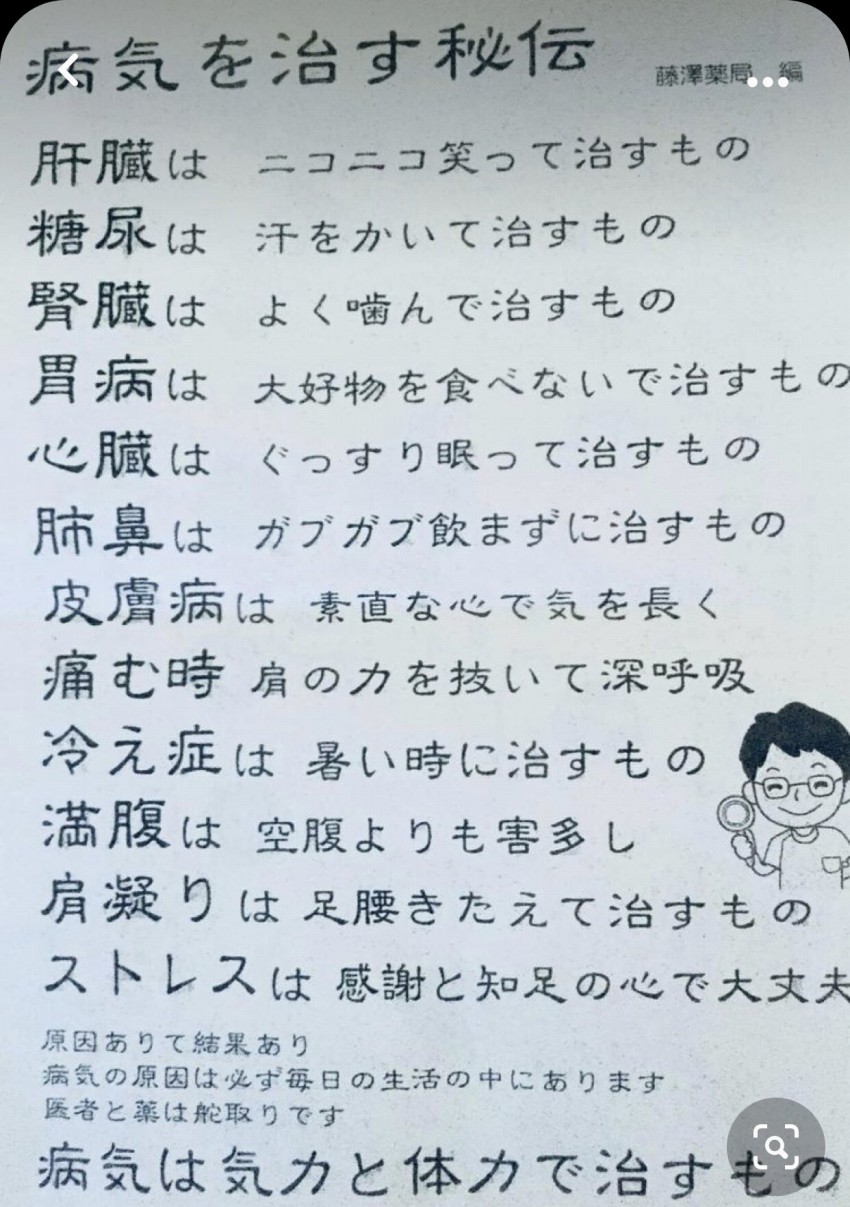 病気を治す秘伝
藤澤薬局 編
肝臓は ニコニコ笑って治すもの
糖尿は 汗をかいて治すもの
腎臓は よく噛んで治すもの
胃病は 大好物を食べないで治すもの
心臓は ぐっすり眠って治すもの
肺鼻は ガブガブ飲まずに治すもの
皮膚病は 素直な心で気を長く
痛む時 肩の力を抜いて深呼吸
冷え症は 暑い時に治すもの
満腹は 空腹よりも害多し
肩凝りは 足腰きたえて治すもの
ストレスは 感謝と知足の心で大丈夫
原因ありて結果あり
病気の原因は必ず毎日の生活の中にあります
医者と薬は舵取りです
病気は気力と体力で治すもの